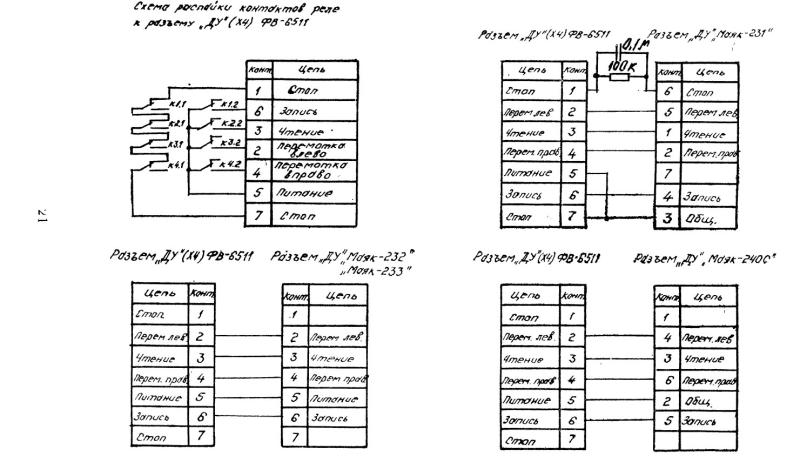 Схема распайки контактов реле
к разъему „ДУ"(Х4) ФВ-6511
Конт. Цепь
1 Стоп
6 Запись
3 Чтение
2 Перемотка влево
4 Перемотка вправо
5 Питание
7 Стоп
К1.1 К1.2
К2.1 К2.2
К3.1 К3.2
К4.1 К4.2
Разъем„ДУ"(Х4) ФВ-6511 Разъем„ДУ"„Маяк-231"
0,1м
100к
Цепь Конт. Конт. Цепь
Стоп 1 6 Стоп
Перем.лев 2 5 Перем.лев
Чтение 3 1 Чтение
Перем.прав. 4 2 Перем.прав
Питание 5 7
Запись 6 4 Запись
Стоп 7 3 Общ.
21
Разъем„ДУ"(Х4) ФВ-6511 Разъем„ДУ"„Маяк-232"
„Маяк-233"
Цепь Конт. Конт. Цепь
Стоп 1 1
Перем.лев. 2 2 Перем.лев.
Чтение 3 3 Чтение
Перем.прав. 4 4 Перем.прав
Питание 5 5 Питание
Запись 6 6 Запись
Стоп 7 7
Разъем„ДУ"(Х4) ФВ-6511 Разъем„ДУ"„Маяк-240С"
Цепь Конт. Конт. Цепь
Стоп 1 1
Перем.лев. 2 4 Перем.лев
Чтение 3 3 Чтение
Перем.прав 4 6 Перем.прав
Питание 5 2 Общ.
Запись 6 5 Запись
Стоп 7